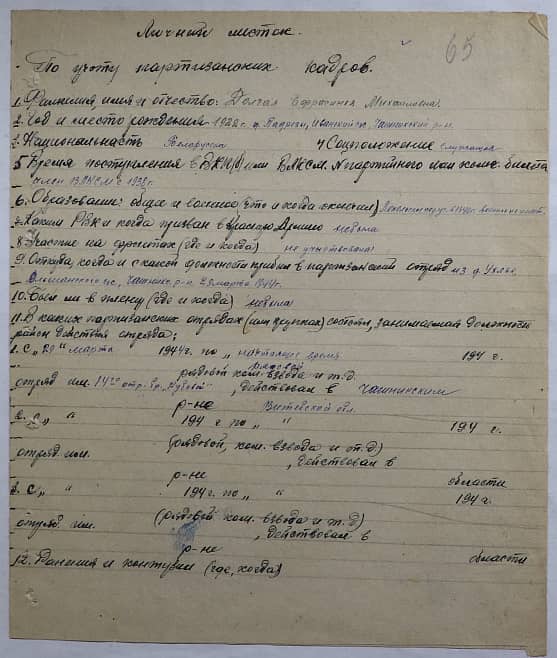 Личный листок.
65
По учёту партизанских кадров.
1. Фамилия, имя и отчество: Долгая Ефросинья Михайловна
2. Год и место рождения 1922 г. д. Иванский с/с, Чашникский р-н.
3. Национальность Белорусска 4 Соцположение служащая
5 Время поступления в ВКП/б или ВЛКСМ. № партийного или комс. билета
член ВЛКСМ с 1938 г.
6. Образование: общее и военное (что и когда окончил)
7. Каким РВК и когда призван в Красную Армию не была
8. Участие на фронтах (где и когда) не участвовала
9. Откуда, когда и с какой должности прибыл в партизанский отряд из д.
с/с, Чашник. р-н. 29 марта 1944 г.
10. Был ли в плену (где и когда) не была
11. В каких партизанских отрядах (или группах) состоял, занимаемая должность
район действия отряда:
1. С „29" марта 1944 г. по „ настоящее время 194 г.
рядовой
рядовой ком. взвода и т.д.
отряд им. 14го отр. бр. „Дубова" , действовал в Чашникским
р-не Витебской обл.
2. С „ " 194 г по „ " 194 г.
(рядовой, ком. взвода и т.д)
отряд им. , действовал в
р-не области
3. С „ " 194 г. по „ " 194 г.
(рядовой ком. взвода и т.д)
отряд им. , действовал в
р-не области
12. Ранения и контузии (где, когда)